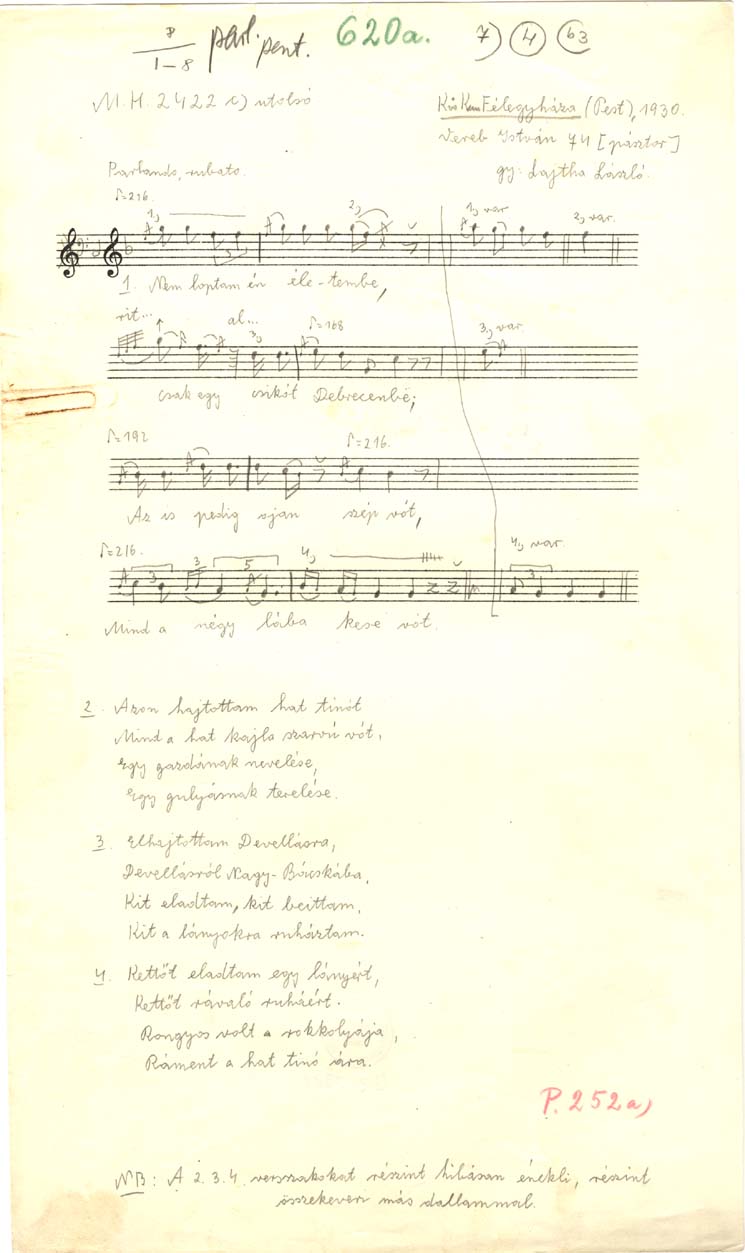 8
1–8 parl. pent. 620a. 7) 4 b3
M.H. 2422 c) utolsó
KisKunFélegyháza (Pest), 1930.
Vereb István 74 [pásztor]
gy: Lajtha László.
Parlando, rubato.
♪=216.
1) 2) 1) var. 2) var.
1. Nem loptam én éle-tembe,
rit... al... ♪=168
3) 3) var.
csak egy csikót Debrecenbe;
♪=192 ♪=216.
Az is pedig ojan szép vót,
♪=216.
3 3 5 4) 4) var. 3
Mind a négy lába kese vót.
2. Azon hajtottam hat tinót
Mind a hat kajla szarvú vót,
Egy gazdának nevelése,
Egy gulyásnak terelése.
3. Elhajtottam Devellásra,
Devellásról Nagy-Bácskába,
Kit eladtam, kit beittam,
Kit a lányokra ruháztam.
4. Kettőt eladtam egy lányért,
Kettőt rávaló ruháért.
Rongyos volt a rokkolyája,
Ráment a hat tinó ára.
P. 252a)
NB: A 2. 3. 4. versszakokat részint hibásan énekli, részint
összekeveri más dallammal.